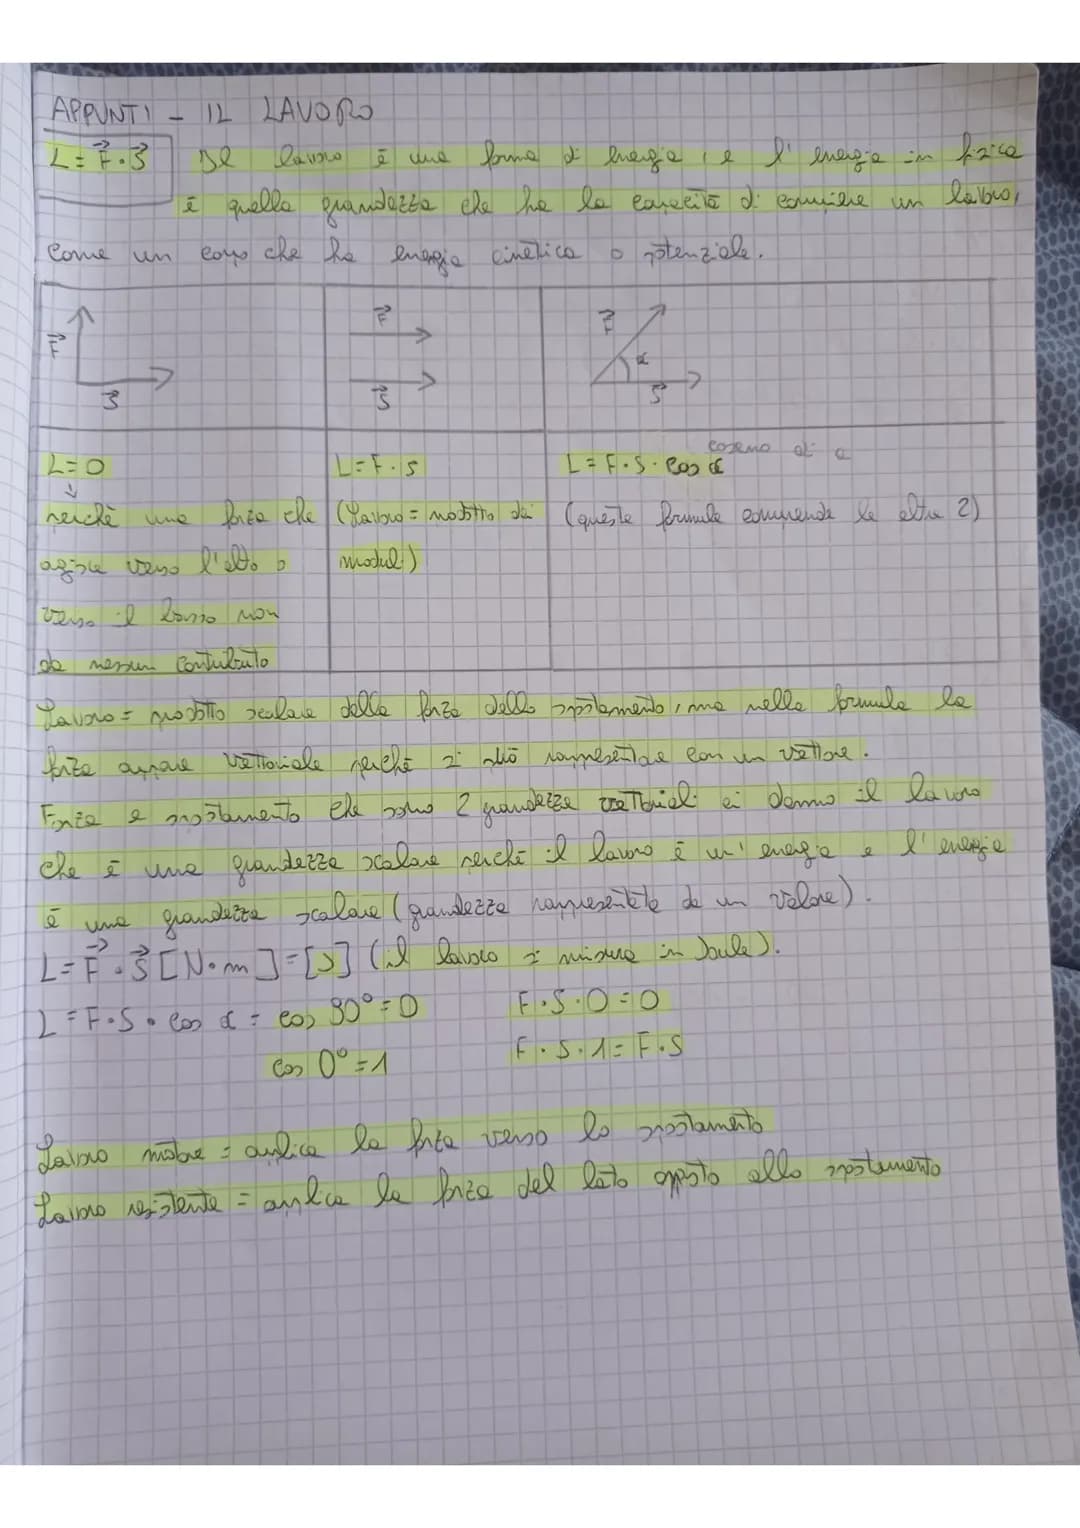 APPUNTI - IL LAVORO
L = F⃗ · S⃗ Il lavoro è una forma di energia, e l'energia in fisica
è quella grandezza che ha la capacità di compiere un lavoro,
come un corpo che ha energia cinetica o potenziale.
F⃗ S⃗
F⃗ S⃗
F⃗ α S⃗
L = 0
↓
perché una forza che
agisce verso l'alto o
verso il basso non
da nessun contributo
L = F · S
(Lavoro = prodotto dei
moduli)
coseno di α
L = F · S · cos α
(queste formula comprende le altre 2)
Lavoro = prodotto scalare della forza dello spostamento, ma nella formula la
forza appare vettoriale perché si può rappresentare con un vettore.
Forza e spostamento che sono 2 grandezze vettoriali ci danno il lavoro
che è una grandezza scalare perché il lavoro è un'energia e l'energia
è una grandezza scalare (grandezza rappresentata da un valore).
L = F⃗ · S⃗ [N·m] = [J] (il lavoro si misura in Joule).
L = F · S · cos α = cos 90° = 0 F · S · 0 = 0
cos 0° = 1 F · S · 1 = F · S
Lavoro motore = applica la forza verso lo spostamento
Lavoro resistente = applica la forza del lato opposto allo spostamento